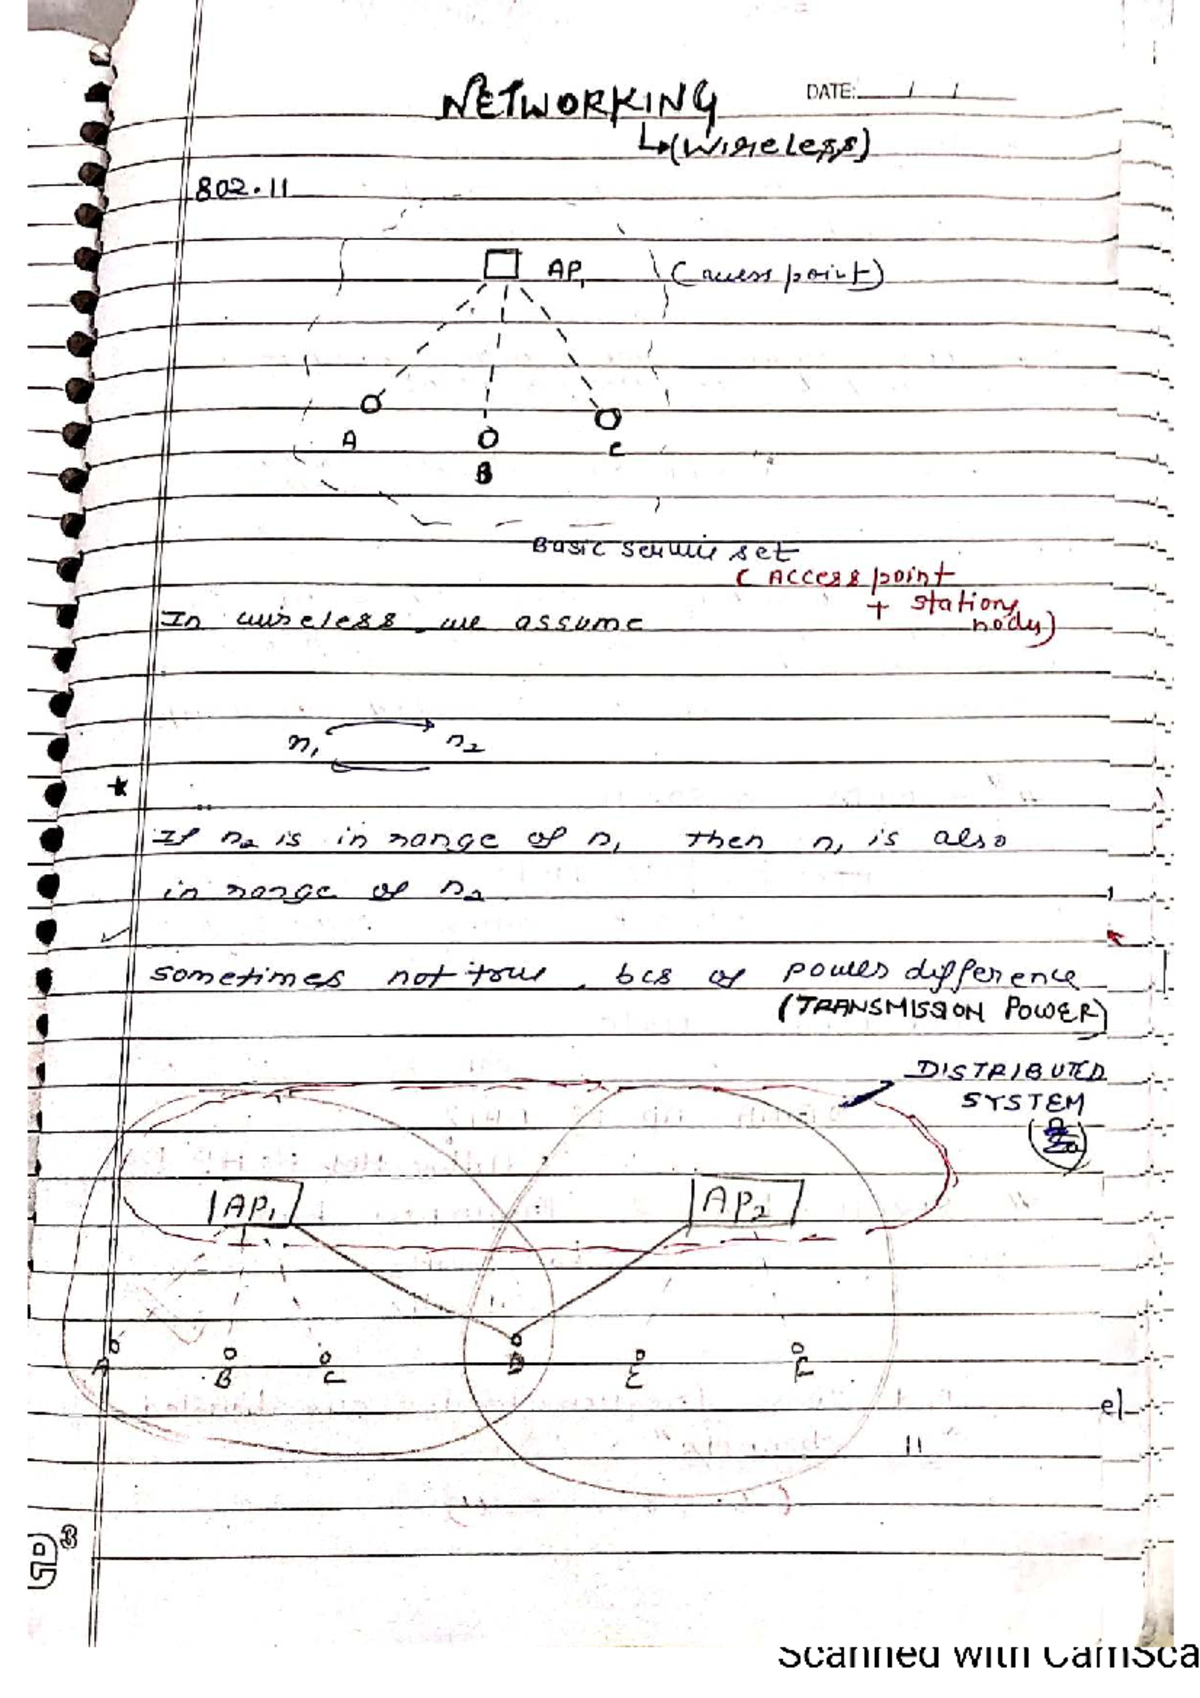 NETWORKING
DATE: / /
↳(Wireless)
802.11
AP1 (access point)
A
B
C
Basic service set
( Access point
+ stations
nodes)
In wireless we assume
n1 n2
*
If n2 is in range of n1 then n1 is also
in range of n2
sometimes not true, bcs of power difference
(TRANSMISSION POWER)
DISTRIBUTED
SYSTEM
AP1 AP2
A B C D E F
e)
11
Scanned with CamSca